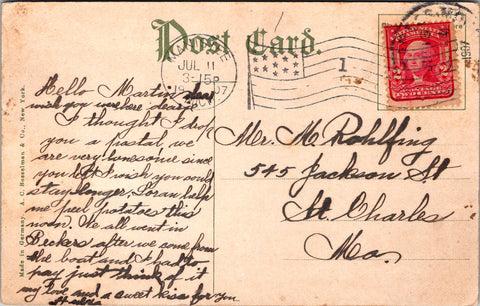 Post Card.
JUL 11
3-15P
1907
1
UNITED STATES OF AMERICA
POSTAGE
2 TWO CENTS 2
1907
Made in Germany. A. C. Bosselman & Co., New York.
Hello Martin dear
wish you were here dearie
I thought I drop
you a postal, we
are very lonesome since
you left I wish you would
stay longer. Loran help
me peel potatoes this
noon. We all went in
Beckers after we come from
the boat and I had to
pay just think of it
my love and a sweet kiss for you
Mr. M Rohlfing
545 Jackson St
St. Charles
Mo.